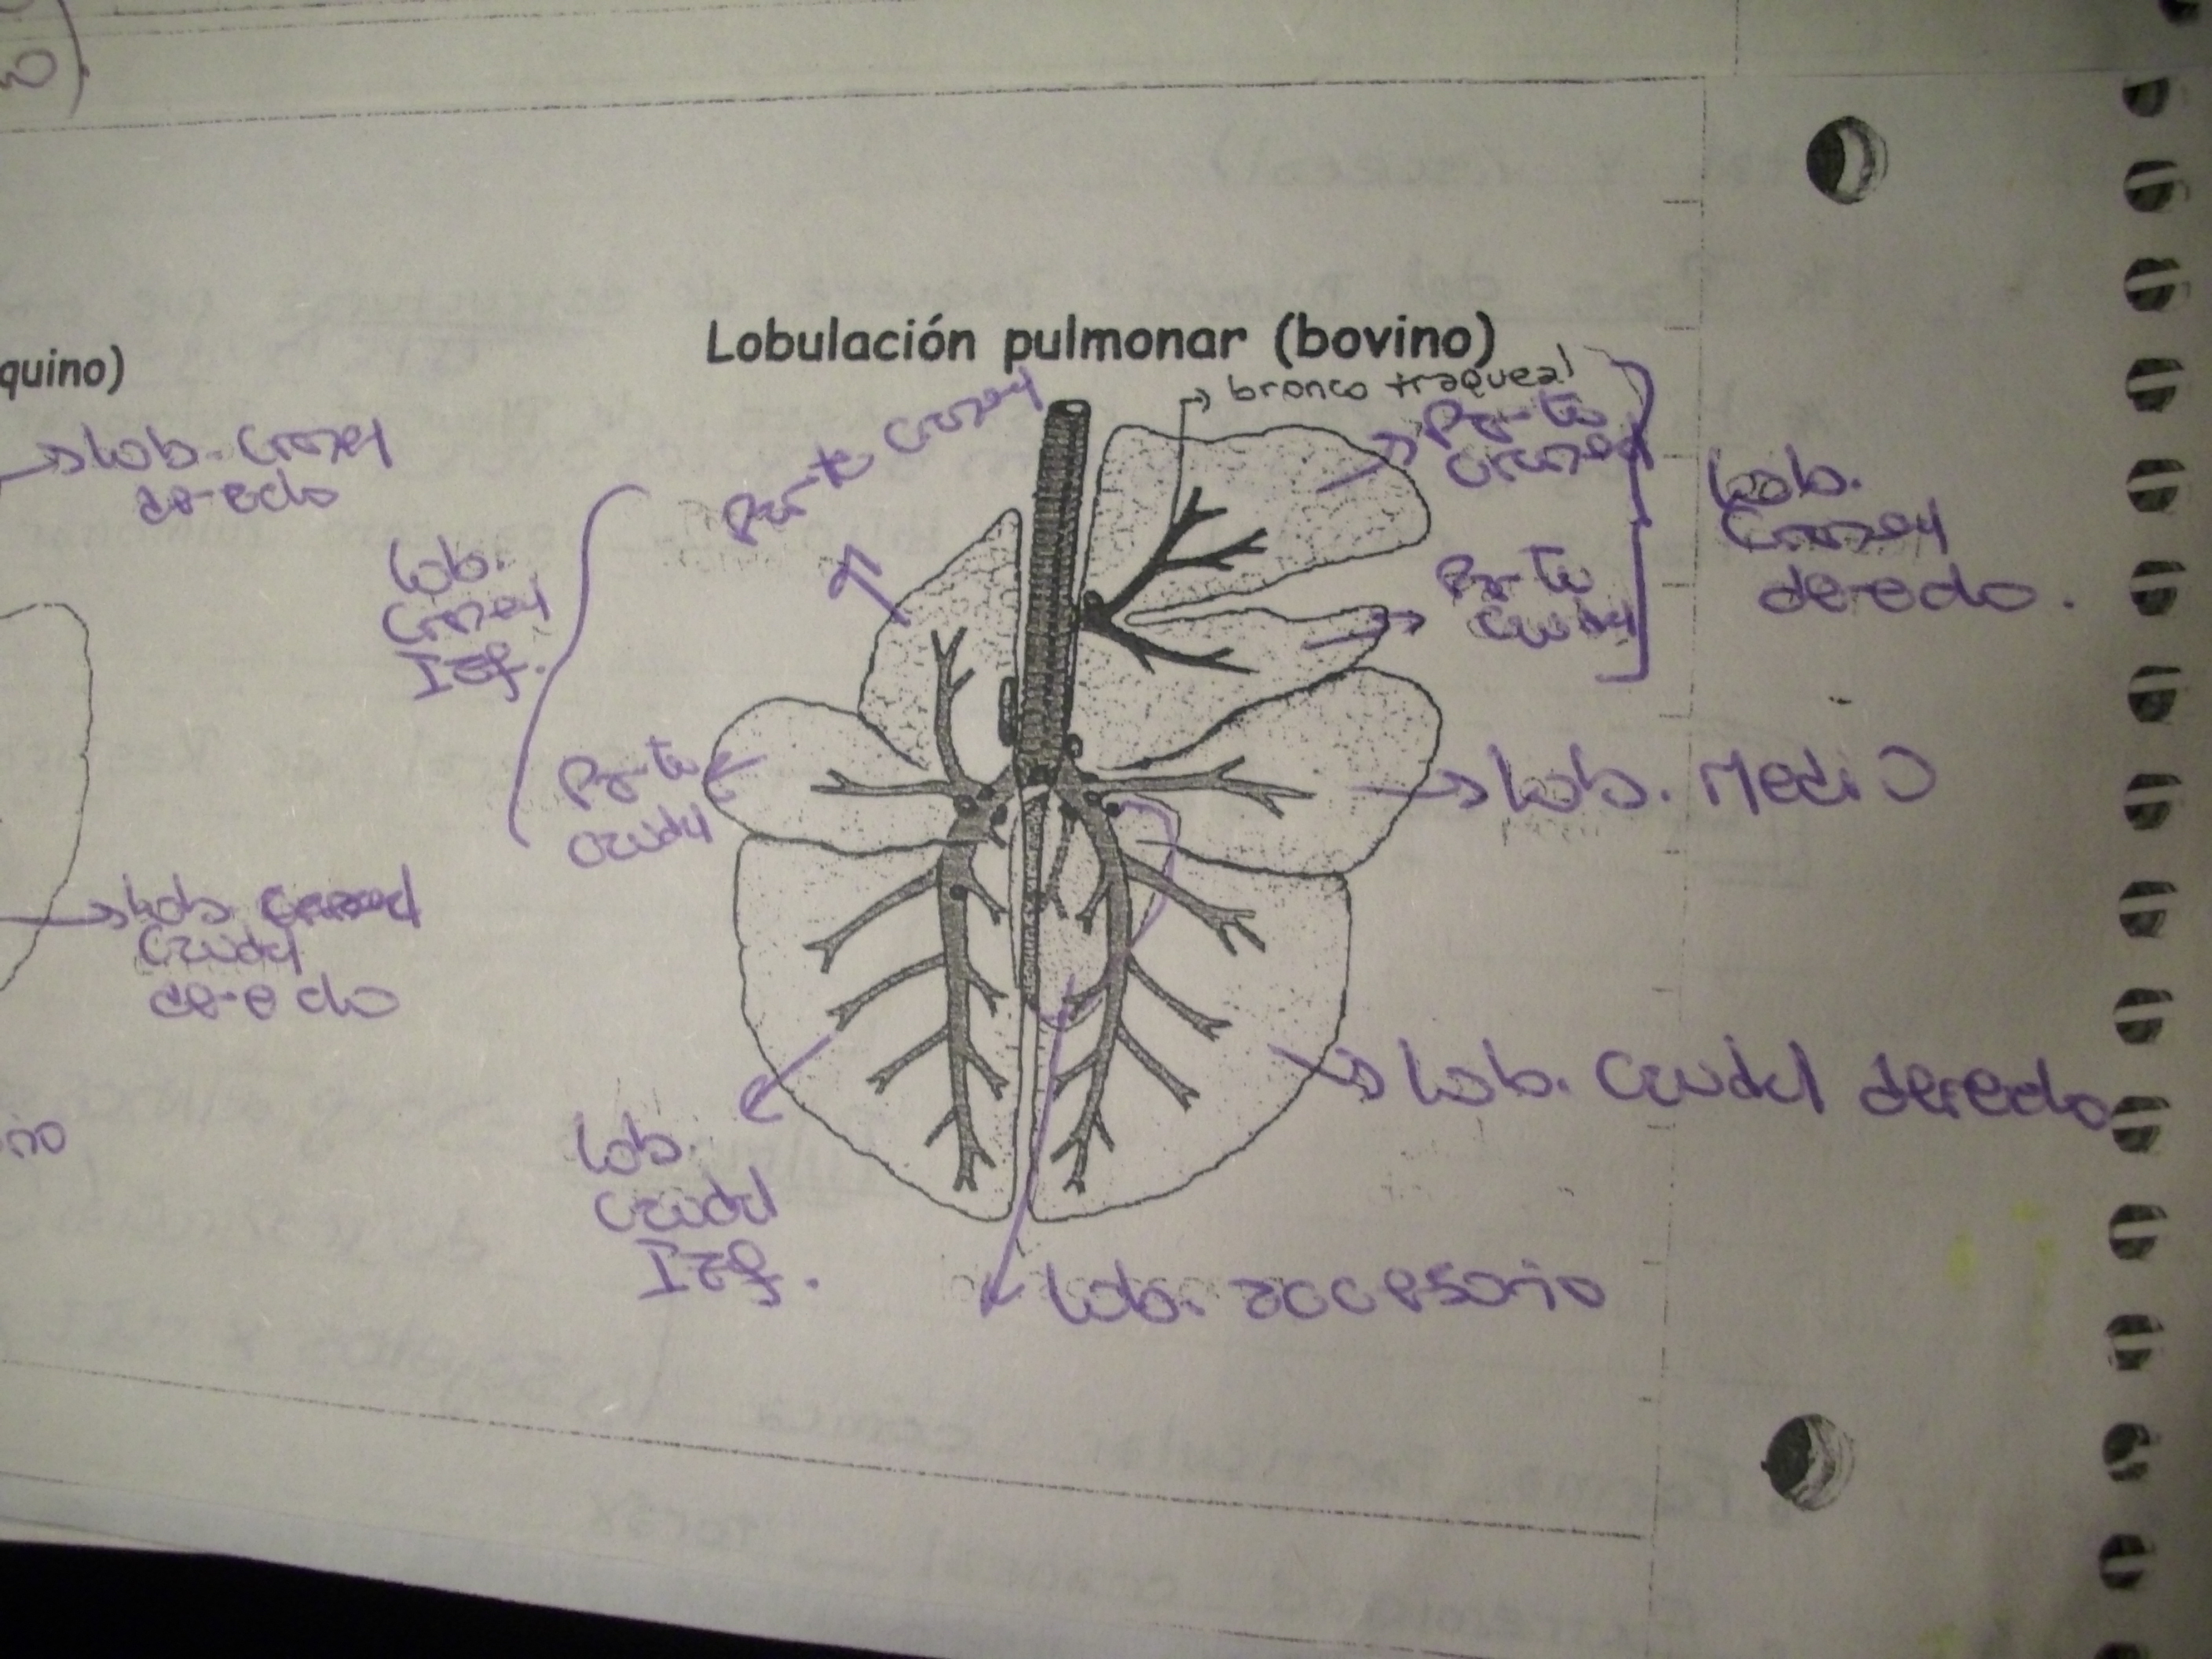 quino)
Lobulación pulmonar (bovino)
bronco traqueal
Lob. Craneal
derecho
Parte craneal
Parte
craneal
Lob.
Craneal
derecho.
Lob.
Craneal
Izq.
Parte
caudal
Parte
caudal
Lob. Medio
Lob.
Caudal
derecho
Lob. Caudal derecho
Lob.
Caudal
Izq.
Lob. accesorio